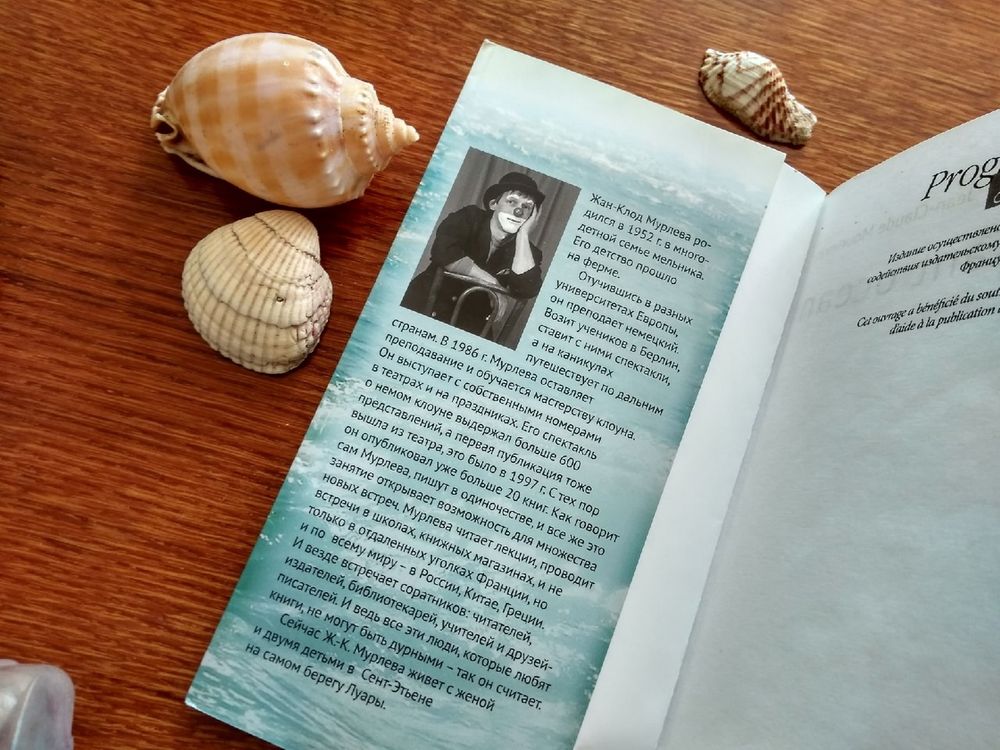 Жан-Клод Мурлева ро-
дился в 1952 г. в много-
детной семье мельника.
Его детство прошло
на ферме.
Отучившись в разных
университетах Европы,
он преподает немецкий.
Возит учеников в Берлин,
ставит с ними спектакли,
а на каникулах
путешествует по дальним
странам. В 1986 г. Мурлева оставляет
преподавание и обучается мастерству клоуна.
Он выступает с собственными номерами
в театрах и на праздниках. Его спектакль
о немом клоуне выдержал больше 600
представлений, а первая публикация тоже
вышла из театра, это было в 1997 г. С тех пор
он опубликовал уже больше 20 книг. Как говорит
сам Мурлева, пишут в одиночестве, и все же это
занятие открывает возможность для множества
новых встреч. Мурлева читает лекции, проводит
встречи в школах, книжных магазинах, и не
только в отдаленных уголках Франции, но
и по всему миру – в России, Китае, Греции.
И везде встречает соратников: читателей,
издателей, библиотекарей, учителей и друзей-
писателей. И ведь все эти люди, которые любят
книги, не могут быть дурными – так он считает.
Сейчас Ж.-К. Мурлева живет с женой
и двумя детьми в Сент-Этьене
на самом берегу Луары.
prog
Издание осуществлено
содействия издательскому
Францу
Cet ouvrage a bénéficié du sout
d'aide à la publication